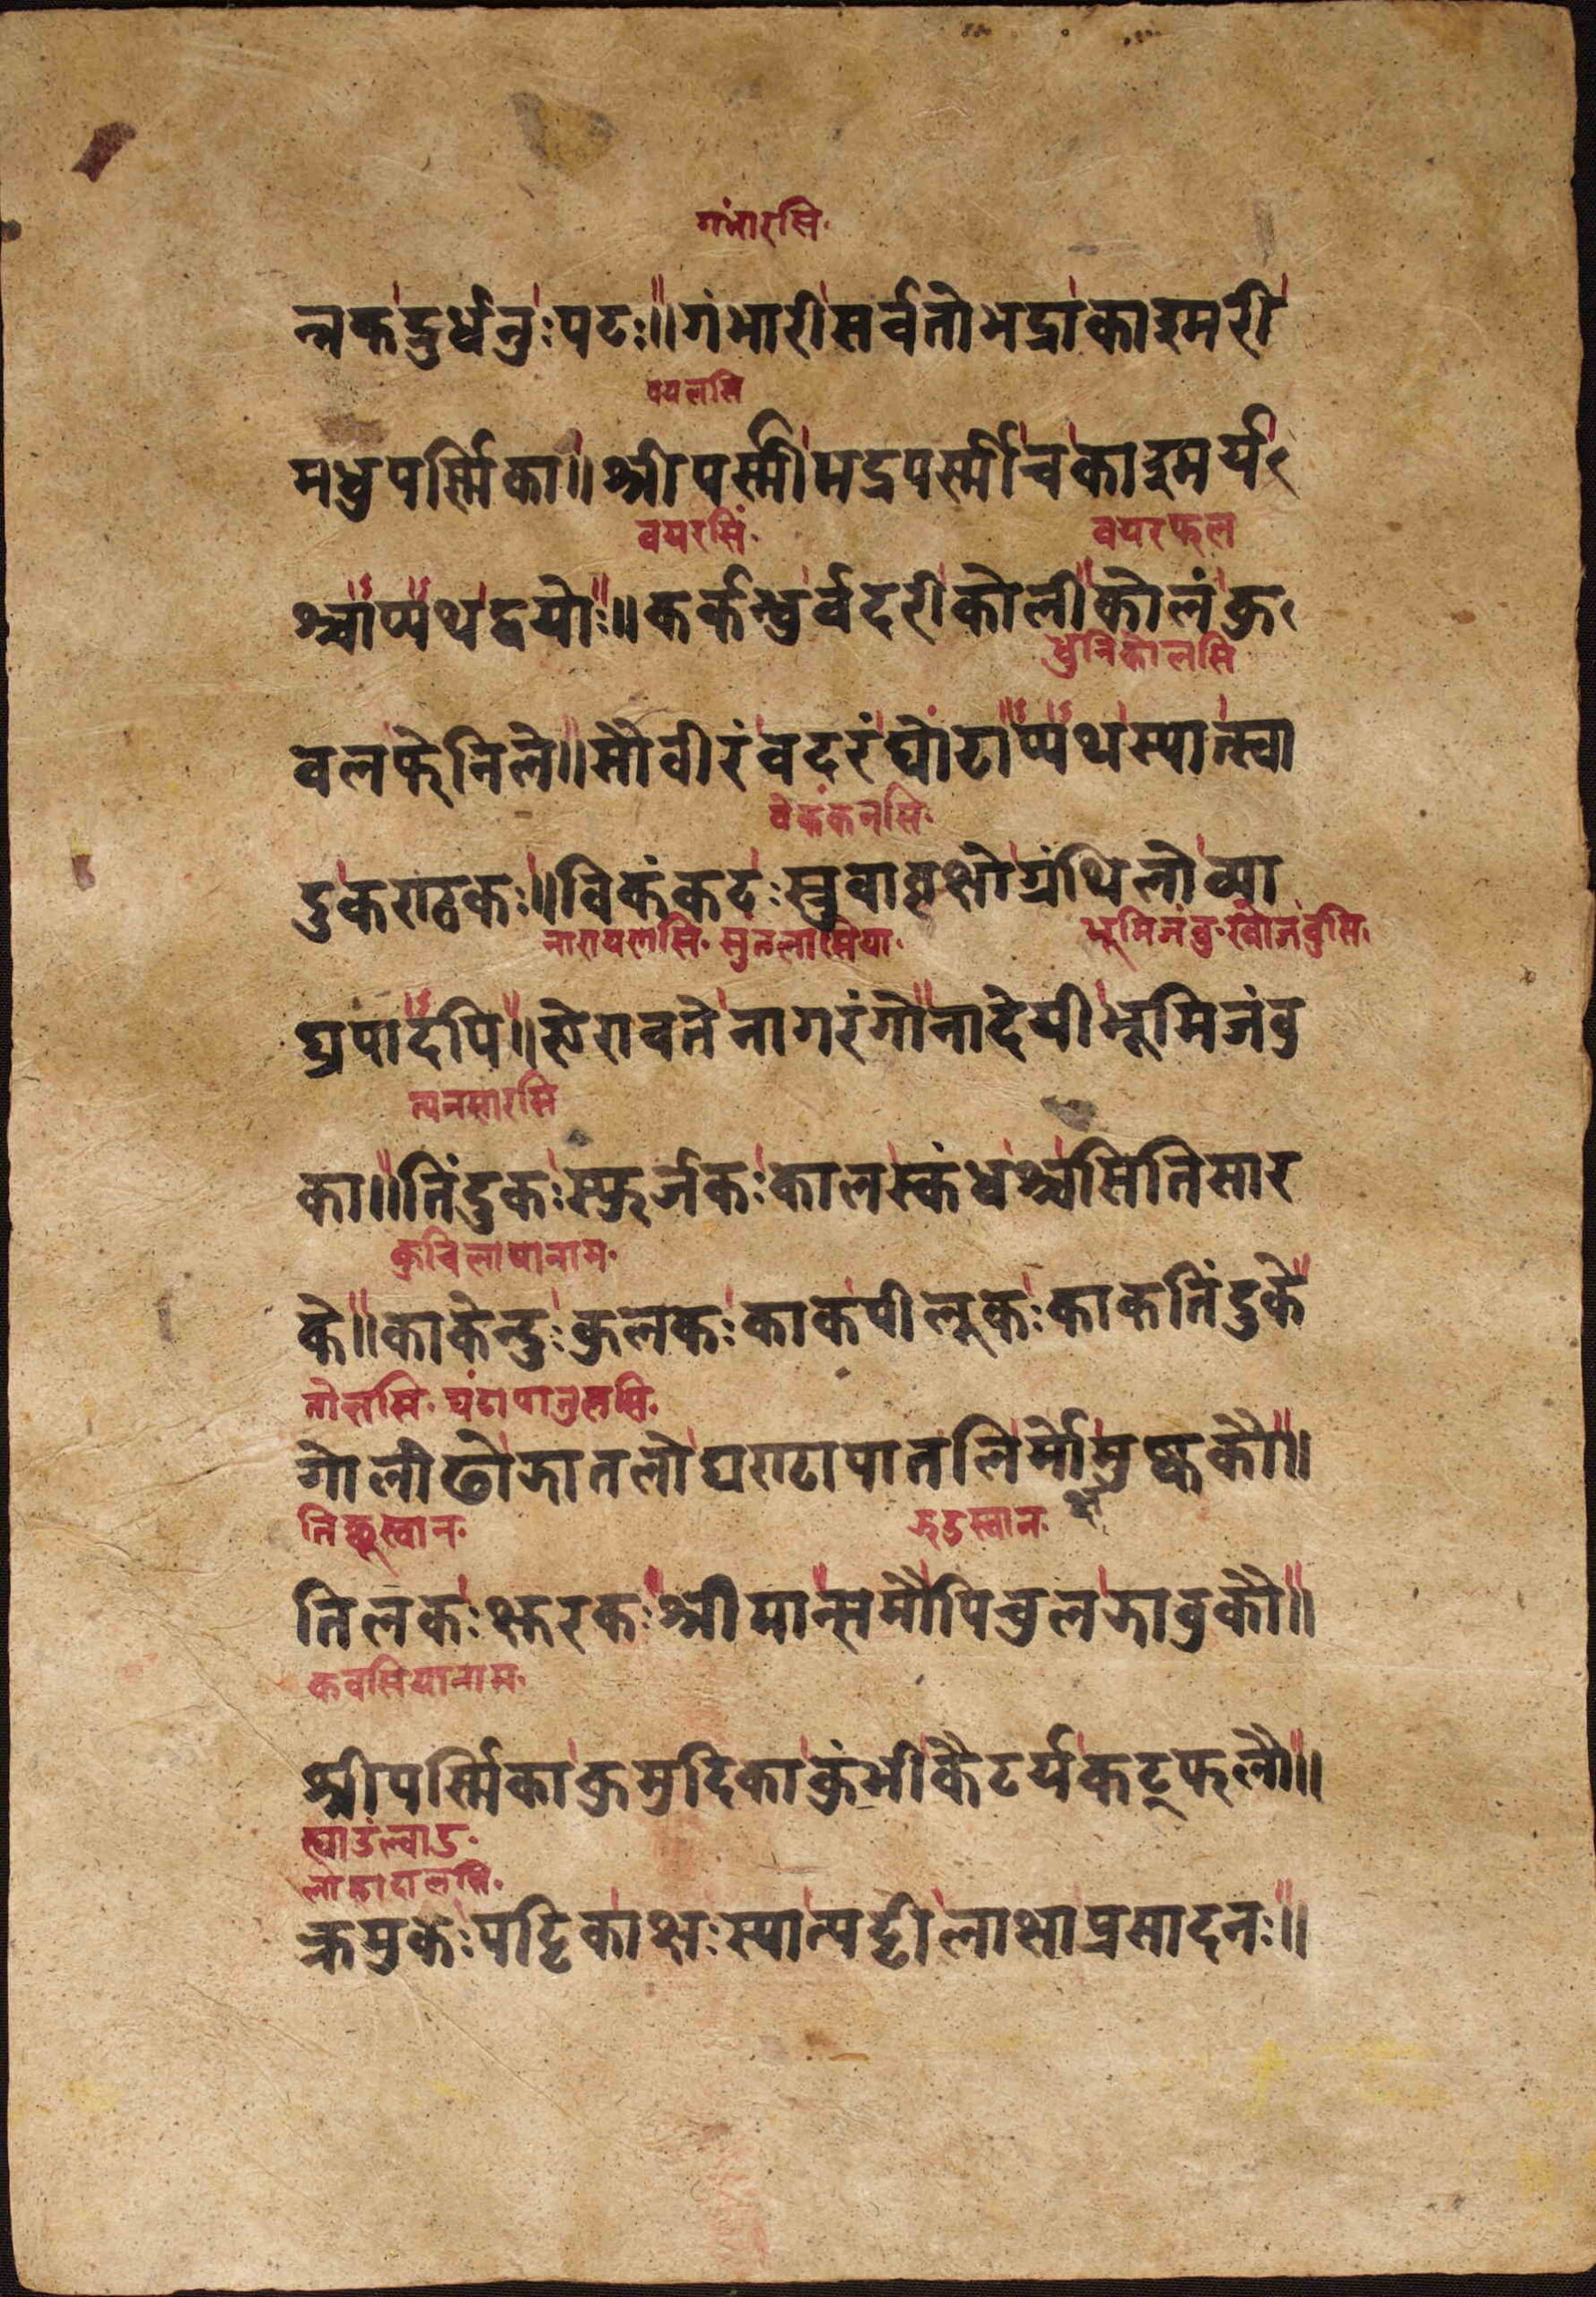 गंभारसि
न्नकद्रुर्धनुःपटः॥गंभारीसर्वतोभद्राकाश्मरी
वयलसि
मधुपर्स्मिका॥श्रीपर्स्मीभद्रपर्स्मीचकाश्मर्य
वयरसिं वयरफल
श्चाप्यथद्वयोः॥कर्कन्धुर्वदरीकोलीकोलंकु
धुनिकोलसि
वलफेनिले॥सौवीरंवदरंघोंटाप्यथस्यात्स्वा
वेकंकनसि
दुकराठकः॥विकंकदःस्त्रुवावृक्षोग्रंथिलोव्या
नारायलसि
भूमिजंबु
घ्रपादपि॥ऐरावतेनागरंगोनादेयीभूमिजंबु
त्यनसारसि
का॥तिंदुकःस्फुर्जकःकालस्कंधश्चसितिसार
कुचिलायानाम
के॥काकेन्दुःकुलकःकाकपीलूकःकाकतिंदुके
गोलीढोझातलोघराटापातलिर्मोमुष्ककौ॥
तिलकःक्षरकःश्रीमान्समौपिचुलझावुकौ॥
कवसियानाम
श्रीपर्स्मिकाकुमुदिकाकुंभीकैटर्यकट्फलौ॥
क्रमुकःपट्टिकाक्षःस्यात्पट्टीलाक्षाप्रसादनः॥